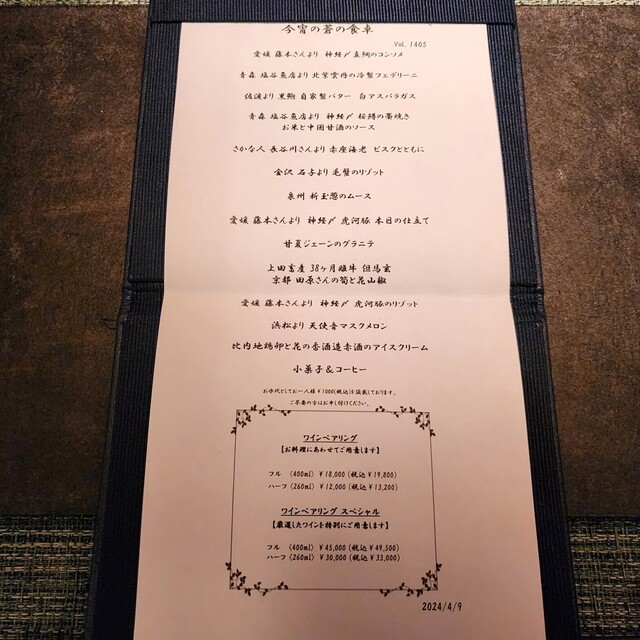 今宵の蒼の食卓
Vol. 1405
愛媛 藤本さんより 神経〆 真鯛のコンソメ
青森 塩谷魚店より 北紫雲丹の冷製フェデリーニ
佐渡より 黒鮑 自家製バター 白アスパラガス
青森 塩谷魚店より 神経〆 桜鱒の藁焼き
お米と中国甘酒のソース
さかな人 長谷川さんより 赤座海老 ビスクとともに
金沢 石子より 毛蟹のリゾット
泉州 新玉葱のムース
愛媛 藤本さんより 神経〆 虎河豚 本日の仕立て
甘夏ジェーンのグラニテ
上田畜産 38ヶ月雌牛 但馬玄
京都 田原さんの筍と花山椒
愛媛 藤本さんより 神経〆 虎河豚のリゾット
浜松より 天使音マスクメロン
比内地鶏卵と花の香酒造赤酒のアイスクリーム
小菓子&コーヒー
お水代としてお一人様¥1000(税込)を頂戴しております。
ご不要の方はお申し付けください。
ワインペアリング
【お料理にあわせてご用意します】
フル 〈400ml〉 ¥18,000 (税込¥19,800)
ハーフ 〈260ml〉 ¥12,000 (税込¥13,200)
ワインペアリング スペシャル
【厳選したワインを特別にご用意します】
フル 〈400ml〉 ¥45,000 (税込¥49,500)
ハーフ 〈260ml〉 ¥30,000 (税込¥33,000)
2024/4/9